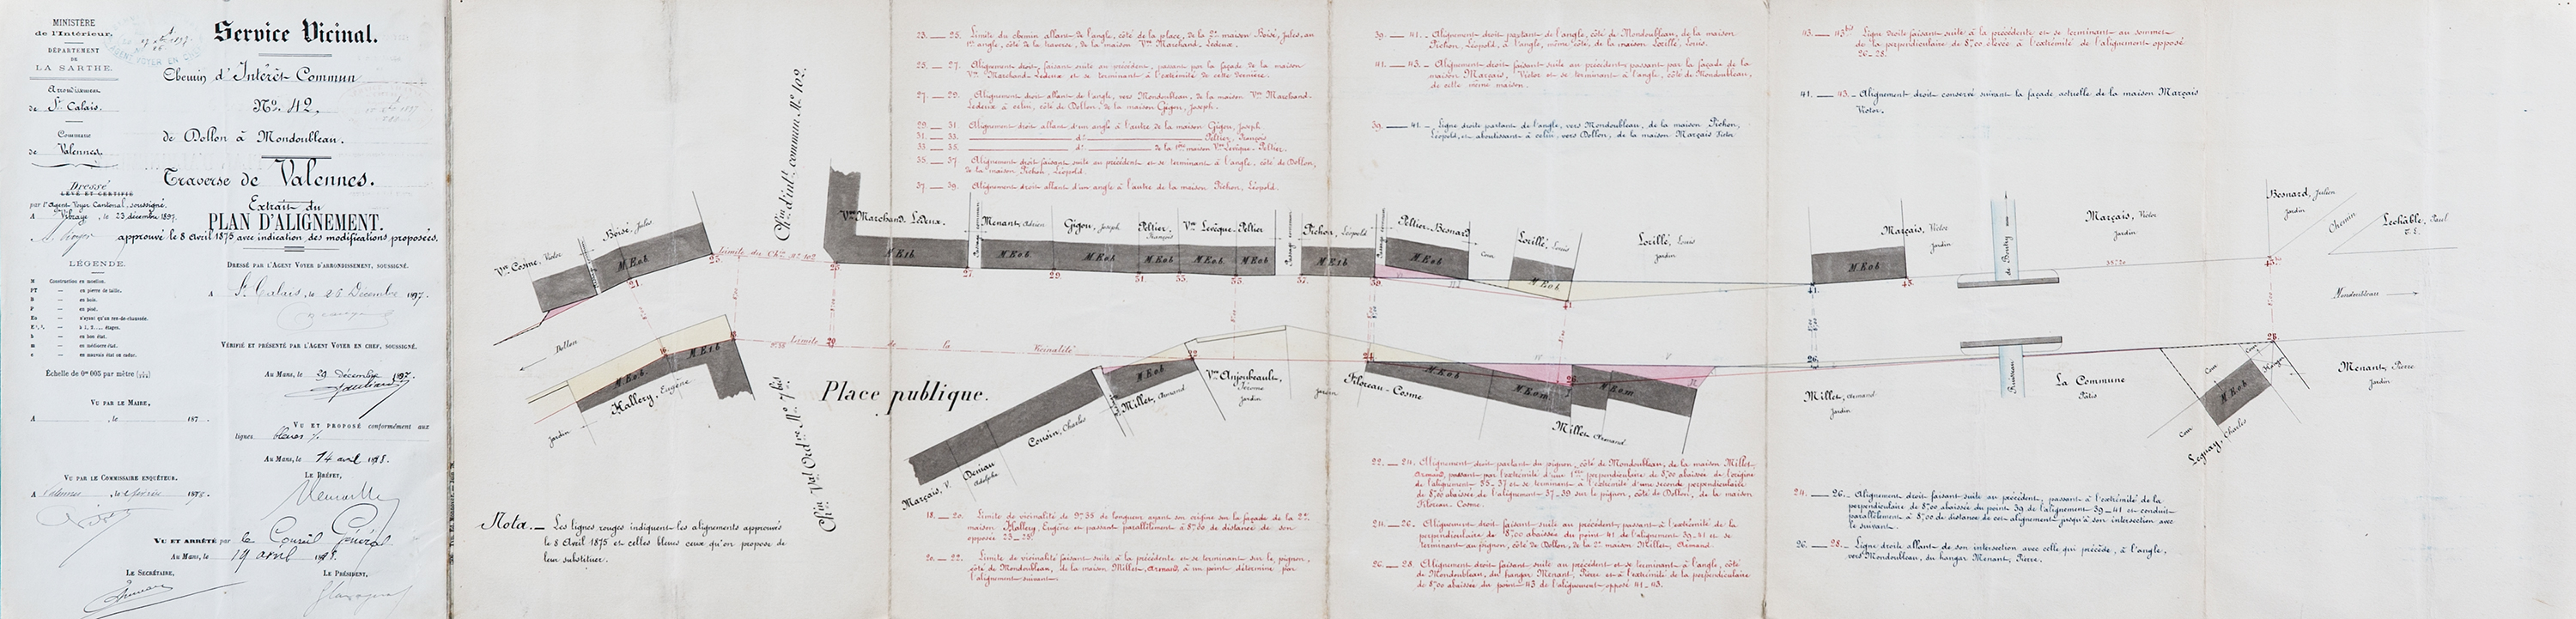 MINISTÈRE
de l'Intérieur.
DÉPARTEMENT
DE
LA SARTHE.
Arrondissement
de St Calais.
Commune
de Valennes.
Service Vicinal.
Chemin d'Intérêt Commun
No. 42.
de Dollon à Mondoubleau.
Traverse de Valennes.
Extrait du
PLAN D'ALIGNEMENT.
approuvé le 8 Avril 1875 avec indication des modifications proposées.
Dressé
LEVÉ ET CERTIFIÉ
par l'Agent Voyer Cantonal, soussigné.
A Vibraye, le 23 décembre 1897.
LÉGENDE.
M Construction en moellon.
PT — en pierre de taille.
B — en bois.
P — en pisé.
Ea — n'ayant qu'un rez-de-chaussée.
— à 1, 2.... étages.
b — en bon état.
m — en médiocre état.
c — en mauvais état ou caduc.
Échelle de 0m 005 par mètre
VU PAR LE MAIRE,
A , le 187 .
VU PAR LE COMMISSAIRE ENQUÊTEUR.
A Valennes , le février 1898.
DRESSÉ PAR L'AGENT VOYER D'ARRONDISSEMENT, SOUSSIGNÉ.
A St Calais, le 26 Décembre 1897.
VÉRIFIÉ ET PRÉSENTÉ PAR L'AGENT VOYER EN CHEF, SOUSSIGNÉ.
Au Mans, le 29 décembre 1897.
VU ET PROPOSÉ conformément aux
lignes bleues
Au Mans, le 14 avril 1898.
LE PRÉFET,
VU ET ARRÊTÉ par le Conseil Général
Au Mans, le 19 avril 1898.
LE SECRÉTAIRE,
LE PRÉSIDENT,
23 — 25. Limite du chemin allant de l'angle, côté de la place, de la 2e maison Boisé, Jules, au
1er angle, côté de la traverse, de la maison Vve Marchand, Ledeux.
25. — 27. Alignement droit, faisant suite au précédent, passant par la façade de la maison
Vve Marchand Ledeux et se terminant à l'extrémité de cette dernière.
27 — 29. Alignement droit allant de l'angle, vers Mondoubleau, de la maison Vve Marchand-
Ledeux à celui, côté de Dollon, de la maison Gigou, Joseph.
29 — 31. Alignement droit allant d'un angle à l'autre de la maison Gigou, Joseph
31. — 33. do Peltier, François
33. — 35. do de la 1ère maison Vve Levêque-Peltier.
35. — 37 Alignement droit faisant suite au précédent et se terminant à l'angle, côté de Dollon,
de la maison Pichon, Léopold.
37. — 39. Alignement droit allant d'un angle à l'autre de la maison Pichon, Léopold.
39. — 41. - Alignement droit partant de l'angle, côté de Mondoubleau, de la maison
Pichon, Léopold, à l'angle, même côté, de la maison Lorillé, Louis.
41. — 43. - Alignement droit faisant suite au précédent, passant par la façade de la
maison Marçais, Victor et se terminant à l'angle, côté de Mondoubleau,
de cette même maison.
39. — 41. - Ligne droite partant de l'angle, vers Mondoubleau, de la maison Pichon,
Léopold, et aboutissant à celui, vers Dollon, de la maison Marçais Victor
43. — 43bis Ligne droite faisant suite à la précédente et se terminant au sommet
de la perpendiculaire de 8m,00 élevée à l'extrémité de l'alignement opposé
26-28.
41. — 43. - Alignement droit conservé suivant la façade actuelle de la maison Marçais
Victor.
Chin d'intt commun No 102.
Vve Cosme, Victor
Boisé, Jules
M E o b
Limite du Chin No 102
Vve Marchand Ledeux.
M E 1 b
Passage commun
Menant, Adrien
M E o b
Gigou, Joseph
M E o b
Peltier,
François
M E o b
Vve Levêque-Peltier
M E o b
M E o b
Pichon, Léopold
M E 1 b
Peltier-Besnard
M E o b
Cour
Lorillé, Louis
M E o b
Lorillé, Louis
Jardin
Marçais, Victor
Jardin
M E o b
de Boutry
Marçais, Victor
Jardin
Besnard, Julien
Jardin
Chemin
Lechable, Paul
Mondoubleau
21. 23. 25. 27. 29. 31. 33. 35. 37. 39. 41. 41. 43. 43.
Dollon
M E o b
M E 1 b
Hallery, Eugène
Jardin
Limite de la Vicinalité
Chin Val Ordre No 7 bis
Place publique.
Marçais, V.
Deniau
Adolphe
Cousin, Charles
M E o b
Millet, Armand
Vve Anjoubeault,
Jérome
Jardin
Jardin
Filoreau-Cosme
M E o b
M E o m
M E o m
Millet, Armand
Millet, Armand
Jardin
Ruisseau
La Commune
Pâtis
Cour
Cour
Cour
Hangar
M E o b
Legnay, Charles
Menant, Pierre
Jardin
20 22 24 26 26 28.
Nota. — Les lignes rouges indiquent les alignements approuvés
le 8 Avril 1875 et celles bleues ceux qu'on propose de
leur substituer.
18. — 20. Limite de vicinalité de 9m 35 de longueur ayant son origine sur la façade de la 2e
maison Hallery, Eugène et passant parallèlement à 8m,50 de distance de son
opposée 23-25.
20. — 22. Limite de vicinalité faisant suite à la précédente et se terminant sur le pignon,
côté de Mondoubleau, de la maison Millet, Armand, à un point déterminé par
l'alignement suivant.
22. — 24. Alignement droit partant du pignon, côté de Mondoubleau, de la maison Millet,
Armand, passant par l'extrémité d'une 1ère perpendiculaire de 8m,00 abaissée de l'origine
de l'alignement 35-37 et se terminant à l'extrémité d'une seconde perpendiculaire
de 8m,00 abaissée de l'alignement 37-39 sur le pignon, côté de Dollon, de la maison
Filoreau Cosme.
24. — 26. Alignement droit faisant suite au précédent, passant à l'extrémité de la
perpendiculaire de 8m,00 abaissée du point 41 de l'alignement 39-41 et se
terminant au pignon, côté de Dollon, de la 2e maison Millet, Armand.
26. — 28. Alignement droit faisant suite au précédent et se terminant à l'angle, côté
de Mondoubleau, du hangar Menant, Pierre et à l'extrémité de la perpendiculaire
de 8m,00 abaissée du point 43 de l'alignement opposé 41-43.
24. — 26. - Alignement droit faisant suite au précédent, passant à l'extrémité de la
perpendiculaire de 8m,00 abaissée du point 39 de l'alignement 39-41 et conduit
parallèlement à 8m,00 de distance de cet alignement jusqu'à son intersection avec
le suivant.
26. — 28. - Ligne droite allant de son intersection avec celle qui précède, à l'angle,
vers Mondoubleau, du hangar Menant, Pierre.